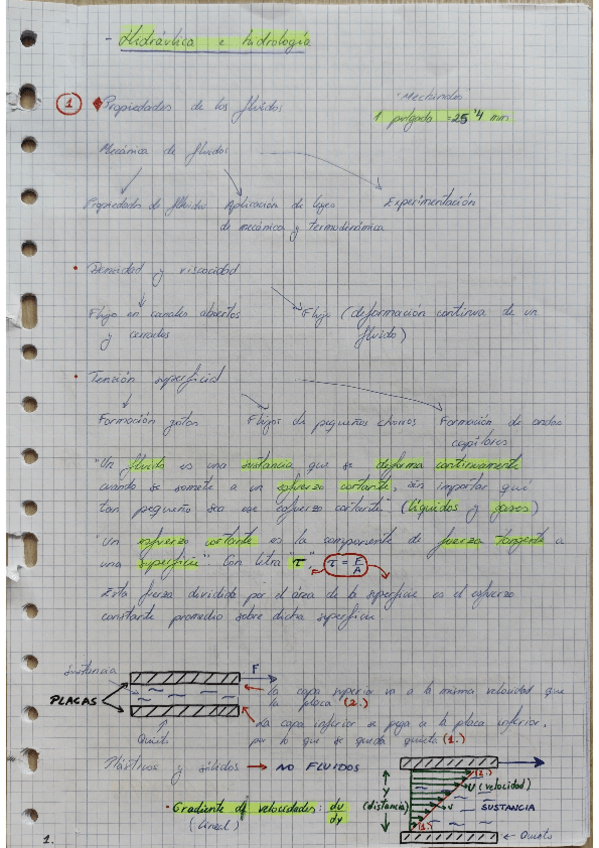 - Hidráulica e hidrología
1 Propiedades de los fluidos
"Mechinales"
1 pulgada = 25'4 mm
Mecánica de fluidos
Propiedades de fluido Aplicación de leyes Experimentación
de mecánica y termodinámica
• Densidad y viscosidad
Flujo en canales abiertos Flujo (deformación continua de un
y cerrados fluido)
• Tensión superficial
Formación gotas Flujos de pequeños chorros Formación de ondas
capilares
"Un fluido es una sustancia que se deforma continuamente
cuando se somete a un esfuerzo cortante, sin importar qué
tan pequeño sea ese esfuerzo cortante" (líquidos y gases)
"Un esfuerzo cortante es la componente de fuerza tangente a
una superficie" Con letra "τ", τ = F/A
Esta fuerza dividida por el área de la superficie es el esfuerzo
constante promedio sobre dicha superficie.
Sustancia
F
PLACAS
La capa superior va a la misma velocidad que
la placa (2.)
La capa inferior se pega a la placa inferior,
por lo que se queda quieta (1.)
Quieto
Plásticos y sólidos → NO FLUIDOS
• Gradiente de velocidades: du/dy
(lineal)
y
(distancia)
(2.)
U (velocidad)
v
SUSTANCIA
(1.)
Quieto
1.